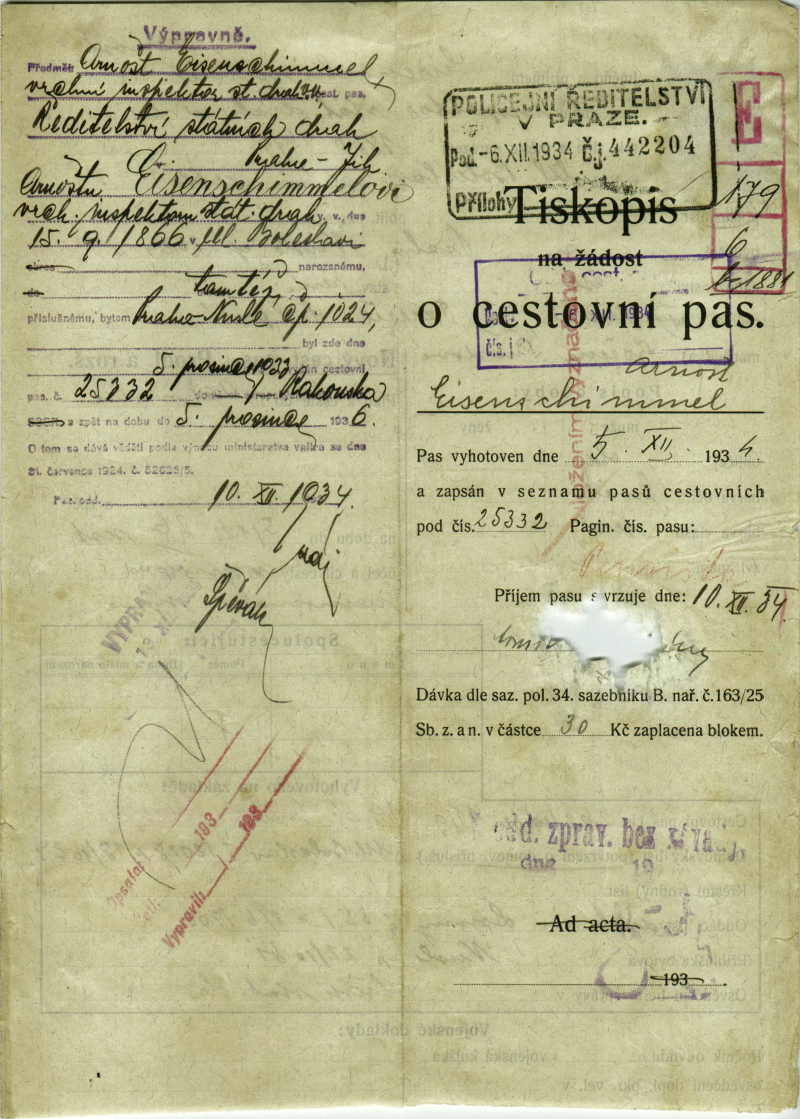 Výpravně.
Předmět: Arnošt Eisenschimmel
vrchní inspektor st. drah v.v., cest. pas.
Ředitelství státních drah
Praha - Jih
Arnoštu Eisenschimmelovi
vrch. inspektoru stát. drah v. v., dne
15. 9. 1866 v Ml. Boleslavi
narozenému,
tamtéž
příslušnému, bytem Praha-Nusle čp. 1024,
byl zde dne
5. prosince 1933 cestovní
pas. č. 25332 do Rakouska
a zpět na dobu do 5. prosince 1936.
O tom se dává věděti podle výnosu ministerstva vnitra ze dne
21. července 1924. č. 52623/5.
Pas. odd. 10. XII. 1934.
Opsáno: 193
Vypravil: 193
POLICEJNÍ ŘEDITELSTVÍ
V PRAZE.
Pod. -6. XII. 1934 Č.j. 442204
Přílohy
Tiskopis
na žádost
o cestovní pas.
čís. j.
179
6
Arnošt
Eisenschimmel
Pas vyhotoven dne 5. XII. 1934.
a zapsán v seznamu pasů cestovních
pod čís. 25332 Pagin. čís. pasu:
Příjem pasu s vrzuje dne: 10. XII. 34.
Dávka dle saz. pol. 34. sazebníku B. nař. č. 163/25
Sb. z. a n. v částce 30 Kč zaplacena blokem.
odd. zprav. bez závady.
dne 19
Ad acta.
193 .